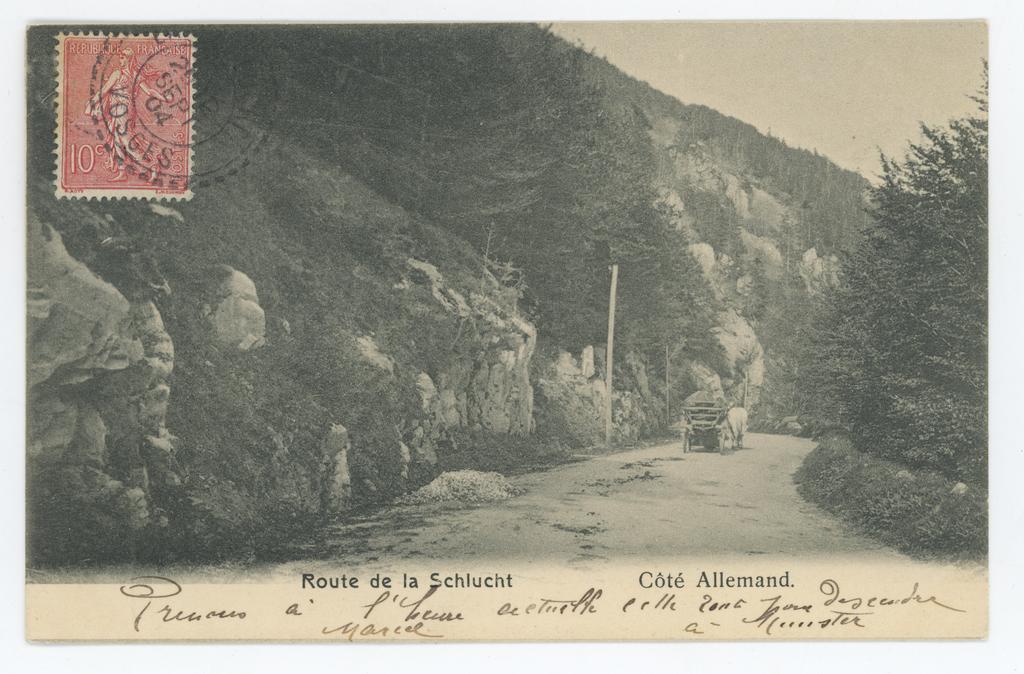 REPUBLIQUE FRANÇAISE
10c
SEPT
04
VOSGES
Route de la Schlucht
Côté Allemand.
Prenons à l'heure actuelle cette route pour descendre
à Munster
Marcel